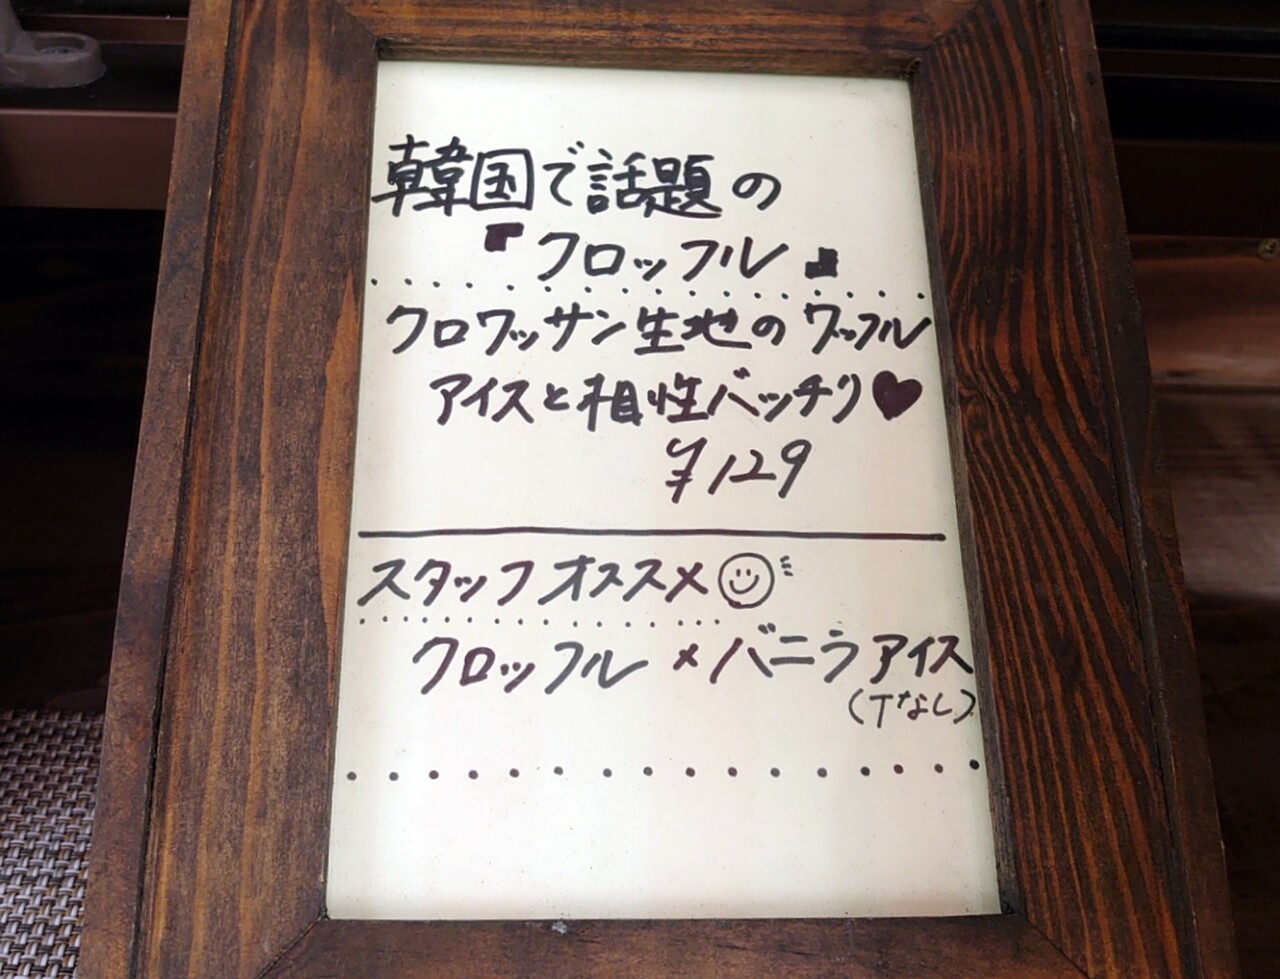 韓国で話題の
『クロッフル』
クロワッサン生地のワッフル
アイスと相性バッチリ♥
¥129
スタッフオススメ☺
クロッフル×バニラアイス
(Tなし)